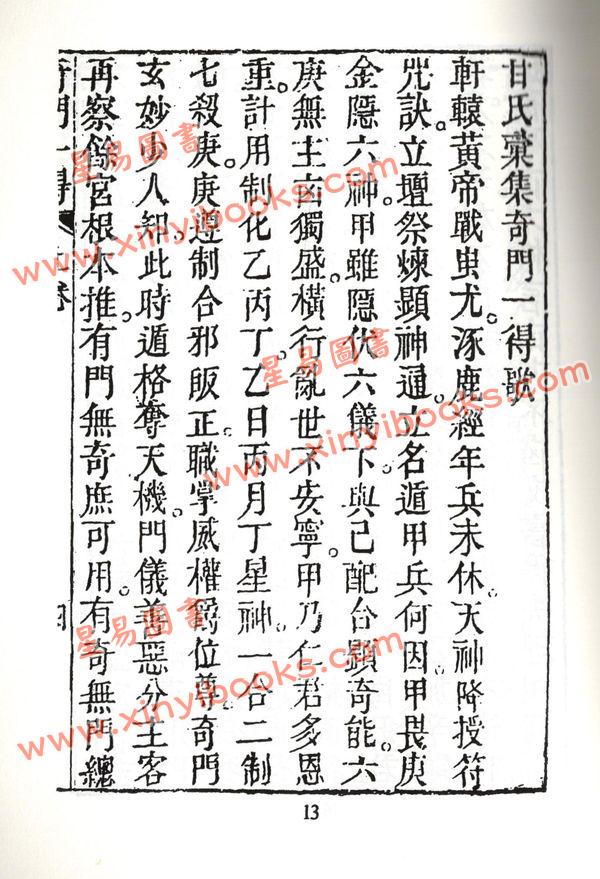 甘氏彙集奇門一得歌
軒轅黃帝戰蚩尤。涿鹿經年兵未休。天神降授符
咒訣。立壇祭煉顯神通。立名遁甲兵何因。甲畏庚
金隱六神。甲雖隱伏六儀下。與己配合顯奇能。六
庚無主凶獨盛。橫行亂世不安寧。甲乃仁君多恩
重。計用制化乙丙丁。乙日丙月丁星神。一合二制
七殺庚。庚遵制合邪皈正。職掌威權爵位尊。奇門
玄妙少人知。此時遁格奪天機。門儀善惡分主客
再察餘宮根本推。有門無奇庶可用。有奇無門總
奇門一得 卷 四
13
星易圖書
www.xinyibooks.com
星易圖書
www.xinyibooks.com
星易圖書
www.xinyibooks.com